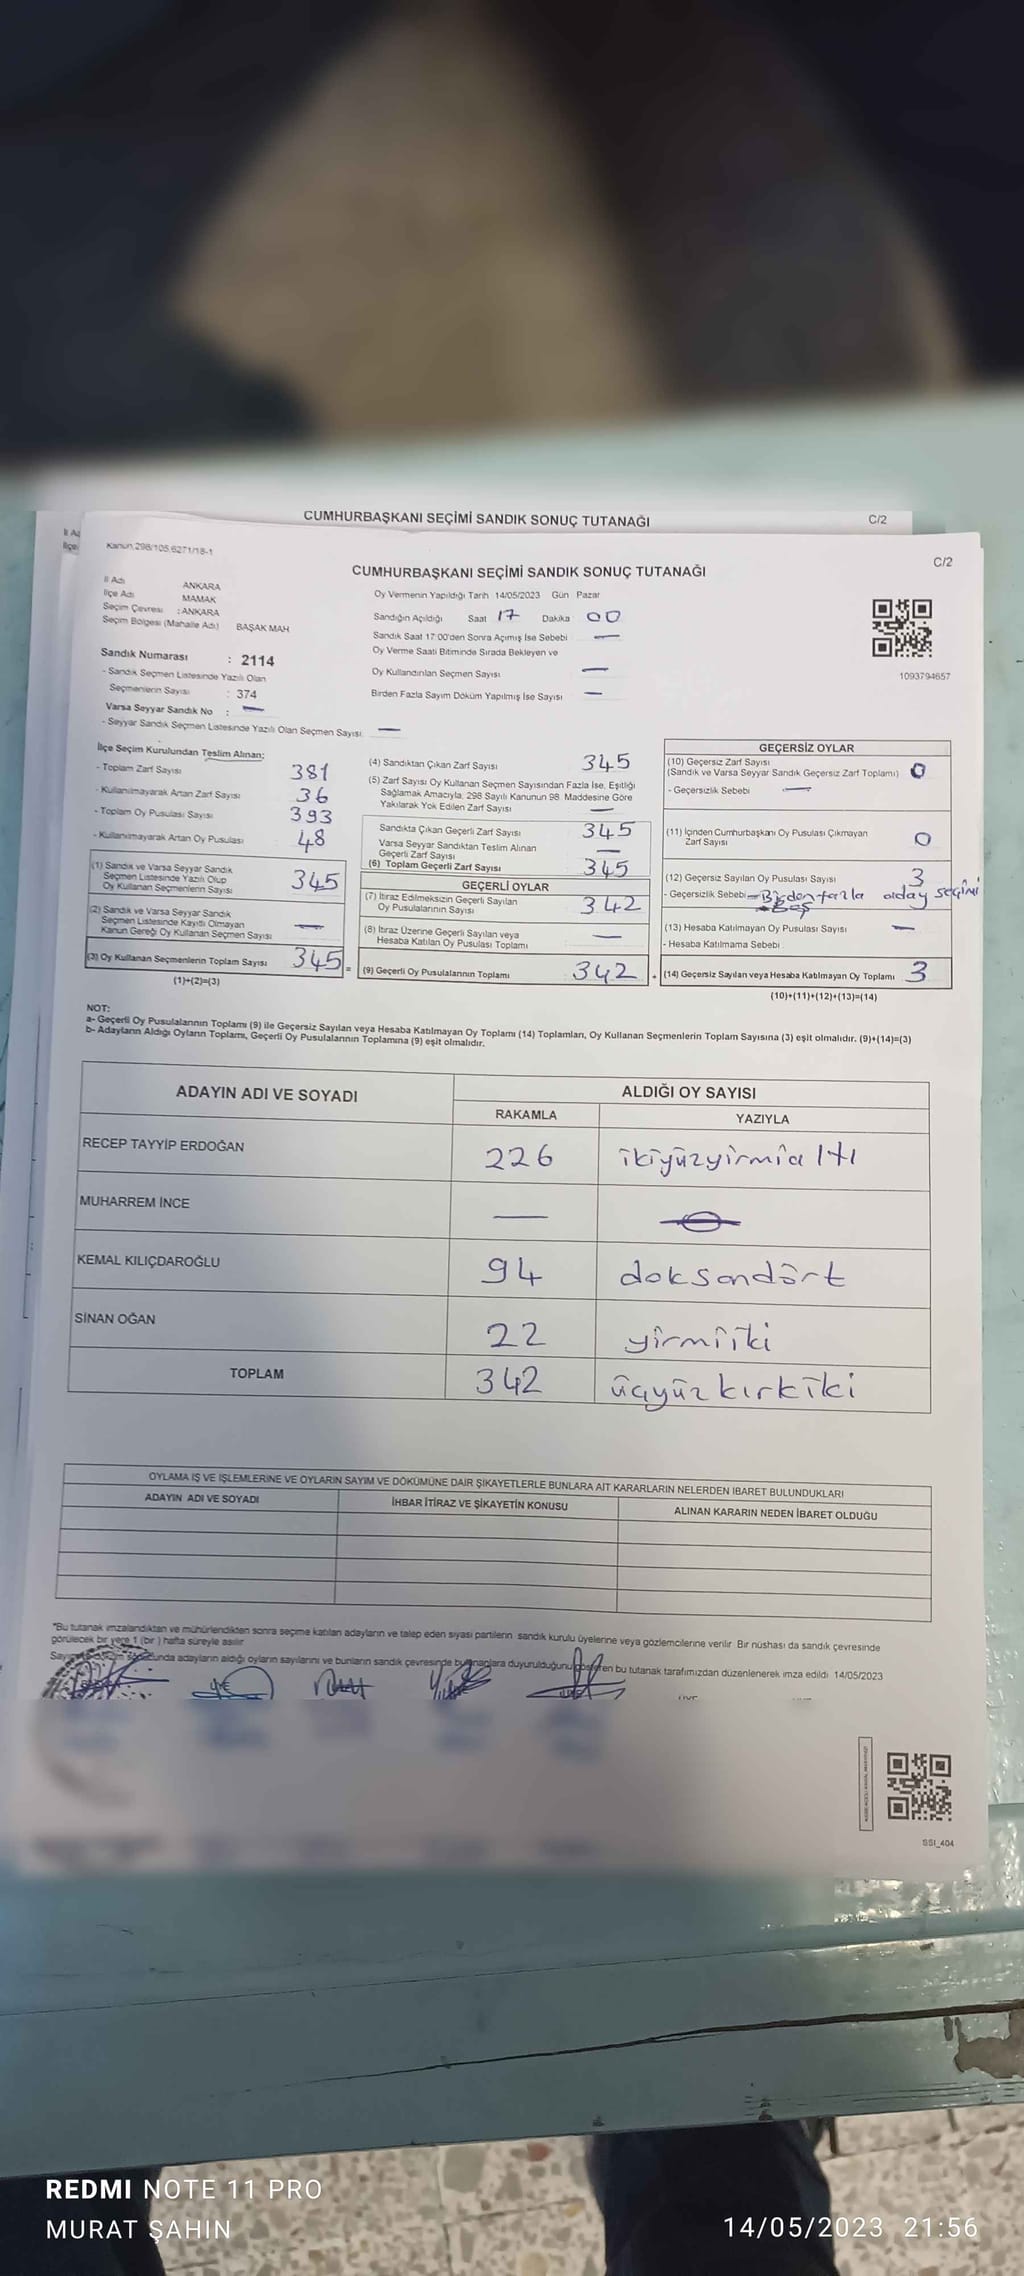 CUMHURBAŞKANI SEÇİMİ SANDIK SONUÇ TUTANAĞI
C/2
Kanun,298/105,6271/18-1
C/2
CUMHURBAŞKANI SEÇİMİ SANDIK SONUÇ TUTANAĞI
İl Adı ANKARA
İlçe Adı MAMAK
Seçim Çevresi : ANKARA
Seçim Bölgesi (Mahalle Adı) BAŞAK MAH
Oy Vermenin Yapıldığı Tarih 14/05/2023 Gün Pazar
Sandığın Açıldığı Saat 17 Dakika 00
Sandık Saat 17:00'den Sonra Açımış İse Sebebi —
Oy Verme Saati Bitiminde Sırada Bekleyen ve
Oy Kullandırılan Seçmen Sayısı —
Birden Fazla Sayım Döküm Yapılmış İse Sayısı —
1093794657
Sandık Numarası : 2114
- Sandık Seçmen Listesinde Yazılı Olan
Seçmenlerin Sayısı : 374
Varsa Seyyar Sandık No : —
- Seyyar Sandık Seçmen Listesinde Yazılı Olan Seçmen Sayısı —
İlçe Seçim Kurulundan Teslim Alınan;
- Toplam Zarf Sayısı 381
- Kullanılmayarak Artan Zarf Sayısı 36
- Toplam Oy Pusulası Sayısı 393
- Kullanılmayarak Artan Oy Pusulası 48
(1) Sandık ve Varsa Seyyar Sandık
Seçmen Listesinde Yazılı Olup
Oy Kullanan Seçmenlerin Sayısı 345
(2) Sandık ve Varsa Seyyar Sandık
Seçmen Listesinde Kayıtlı Olmayan
Kanun Gereği Oy Kullanan Seçmen Sayısı —
(3) Oy Kullanan Seçmenlerin Toplam Sayısı 345 =
(1)+(2)=(3)
(4) Sandıktan Çıkan Zarf Sayısı 345
(5) Zarf Sayısı Oy Kullanan Seçmen Sayısından Fazla İse, Eşitliği
Sağlamak Amacıyla, 298 Sayılı Kanunun 98. Maddesine Göre
Yakılarak Yok Edilen Zarf Sayısı —
Sandıkta Çıkan Geçerli Zarf Sayısı 345
Varsa Seyyar Sandıktan Teslim Alınan
Geçerli Zarf Sayısı —
(6) Toplam Geçerli Zarf Sayısı 345
GEÇERLİ OYLAR
(7) İtiraz Edilmeksizin Geçerli Sayılan
Oy Pusulalarının Sayısı 342
(8) İtiraz Üzerine Geçerli Sayılan veya
Hesaba Katılan Oy Pusulası Toplamı —
(9) Geçerli Oy Pusulalarının Toplamı 342 +
GEÇERSİZ OYLAR
(10) Geçersiz Zarf Sayısı
(Sandık ve Varsa Seyyar Sandık Geçersiz Zarf Toplamı) 0
- Geçersizlik Sebebi —
(11) İçinden Cumhurbaşkanı Oy Pusulası Çıkmayan
Zarf Sayısı 0
(12) Geçersiz Sayılan Oy Pusulası Sayısı 3
- Geçersizlik Sebebi - Birden fazla aday seçimi
- Boş
(13) Hesaba Katılmayan Oy Pusulası Sayısı —
- Hesaba Katılmama Sebebi
(14) Geçersiz Sayılan veya Hesaba Katılmayan Oy Toplamı 3
(10)+(11)+(12)+(13)=(14)
NOT:
a- Geçerli Oy Pusulalarının Toplamı (9) ile Geçersiz Sayılan veya Hesaba Katılmayan Oy Toplamı (14) Toplamları, Oy Kullanan Seçmenlerin Toplam Sayısına (3) eşit olmalıdır. (9)+(14)=(3)
b- Adayların Aldığı Oyların Toplamı, Geçerli Oy Pusulalarının Toplamına (9) eşit olmalıdır.
ADAYIN ADI VE SOYADI
ALDIĞI OY SAYISI
RAKAMLA YAZIYLA
RECEP TAYYİP ERDOĞAN 226 ikiyüzyirmialtı
MUHARREM İNCE —
KEMAL KILIÇDAROĞLU 94 doksandört
SİNAN OĞAN 22 yirmiiki
TOPLAM 342 üçyüzkırkiki
OYLAMA İŞ VE İŞLEMLERİNE VE OYLARIN SAYIM VE DÖKÜMÜNE DAİR ŞİKAYETLERLE BUNLARA AİT KARARLARIN NELERDEN İBARET BULUNDUKLARI
ADAYIN ADI VE SOYADI İHBAR İTİRAZ VE ŞİKAYETİN KONUSU ALINAN KARARIN NEDEN İBARET OLDUĞU
*Bu tutanak imzalandıktan ve mühürlendikten sonra seçime katılan adayların ve talep eden siyasi partilerin sandık kurulu üyelerine veya gözlemcilerine verilir Bir nüshası da sandık çevresinde
görülecek bir yere 1 (bir) hafta süreyle asılır
adayların aldığı oyların sayılarını ve bunların sandık çevresinde duyurulduğunu gösteren bu tutanak tarafımızdan düzenlenerek imza edildi 14/05/2023
SSI_404
REDMI NOTE 11 PRO
MURAT ŞAHIN
14/05/2023 21:56